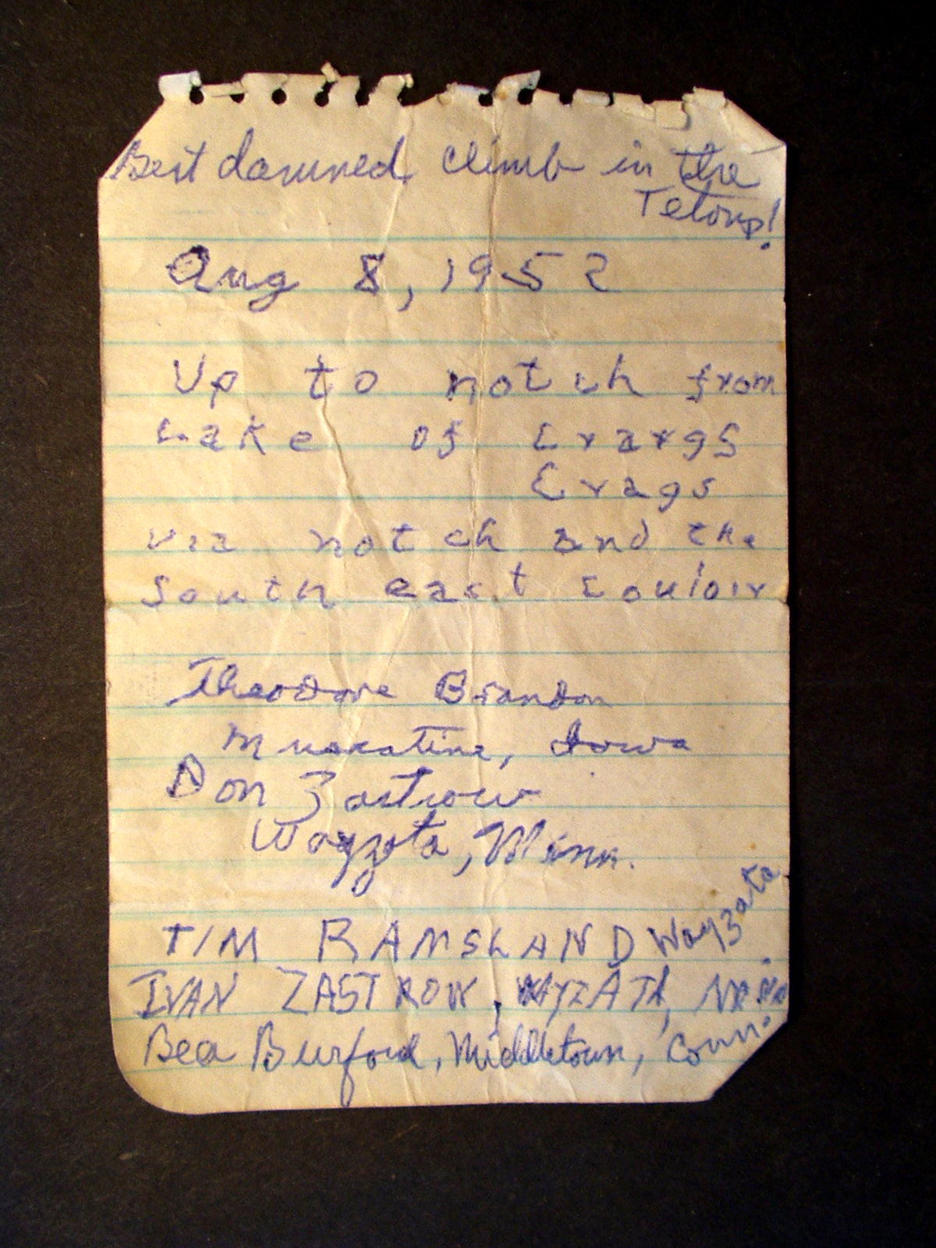 Best damned climb in the
Tetons!
Aug 8, 1952
Up to notch from
Lake of Crargs
Crags
via notch and the
South east Couloir
Theodore Brandon
Muscatine, Iowa
Don Zastrow
Wayzata, Minn.
TIM RAMSLAND Wayzata
IVAN ZASTROW, WAYZATA,
Bea Burford, Middletown, Conn.